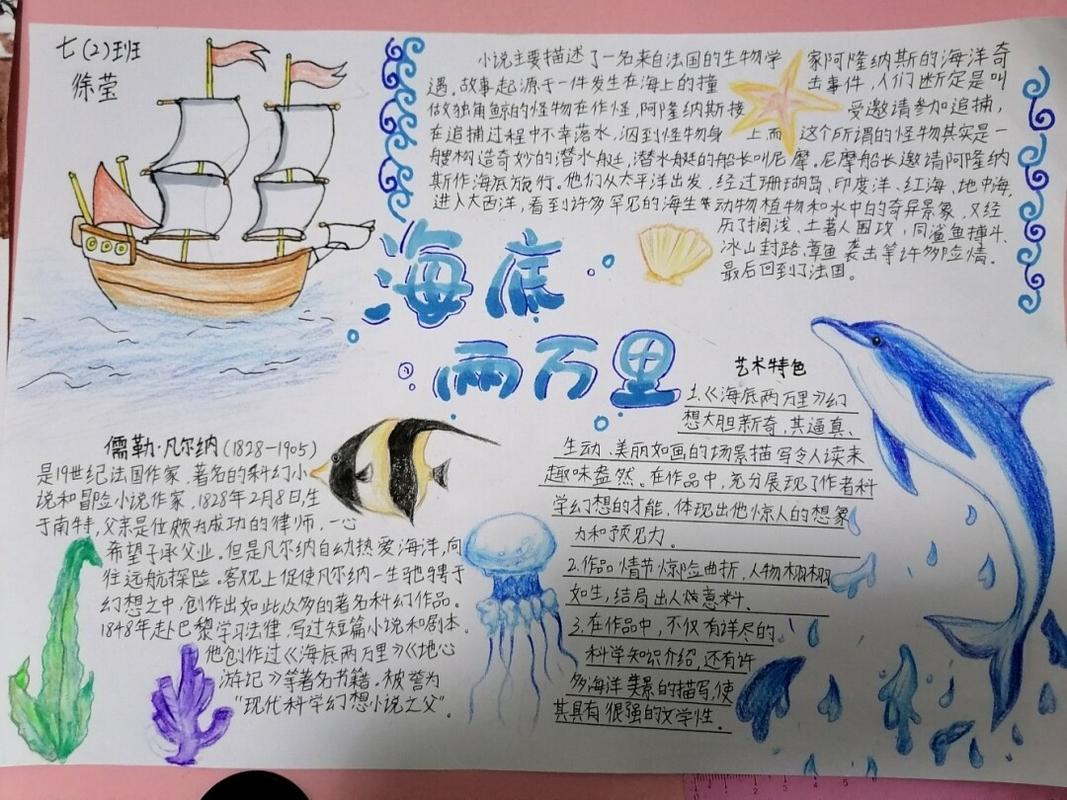 七(2)班
徐莹
小说主要描述了一名来自法国的生物学家阿隆纳斯的海洋奇
遇。故事起源于一件发生在海上的撞击事件,人们断定是叫
做独角鲸的怪物在作怪,阿隆纳斯接受邀请参加追捕,
在追捕过程中不幸落水,泅到怪物身上而这个所谓的怪物其实是一
艘构造奇妙的潜水艇,潜水艇的船长叫尼摩。尼摩船长邀请阿隆纳
斯作海底旅行。他们从太平洋出发,经过珊瑚岛、印度洋、红海、地中海,
进入大西洋,看到许多罕见的海生动物植物和水中的奇异景象,又经
历了搁浅、土著人围攻,同鲨鱼搏斗、
冰山封路、章鱼袭击等许多险情。
最后回到了法国。
海底
两万里
艺术特色
1.《海底两万里》幻
想大胆新奇,其逼真、
生动、美丽如画的场景描写令人读来
趣味盎然。在作品中,充分展现了作者科
学幻想的才能,体现出他惊人的想象
力和预见力。
2.作品情节惊险曲折,人物栩栩
如生,结局出人意料。
3.在作品中,不仅有详尽的
科学知识介绍,还有许
多海洋美景的描写,使
其具有很强的文学性。
儒勒·凡尔纳(1828—1905)
是19世纪法国作家,著名的科幻小
说和冒险小说作家,1828年2月8日,生
于南特,父亲是位颇为成功的律师,一心
希望子承父业。但是凡尔纳自幼热爱海洋,向
往远航探险。客观上促使凡尔纳一生驰骋于
幻想之中,创作出如此众多的著名科幻作品。
1848年赴巴黎学习法律,写过短篇小说和剧本。
他创作过《海底两万里》《地心
游记》等著名书籍,被誉为
“现代科学幻想小说之父”。